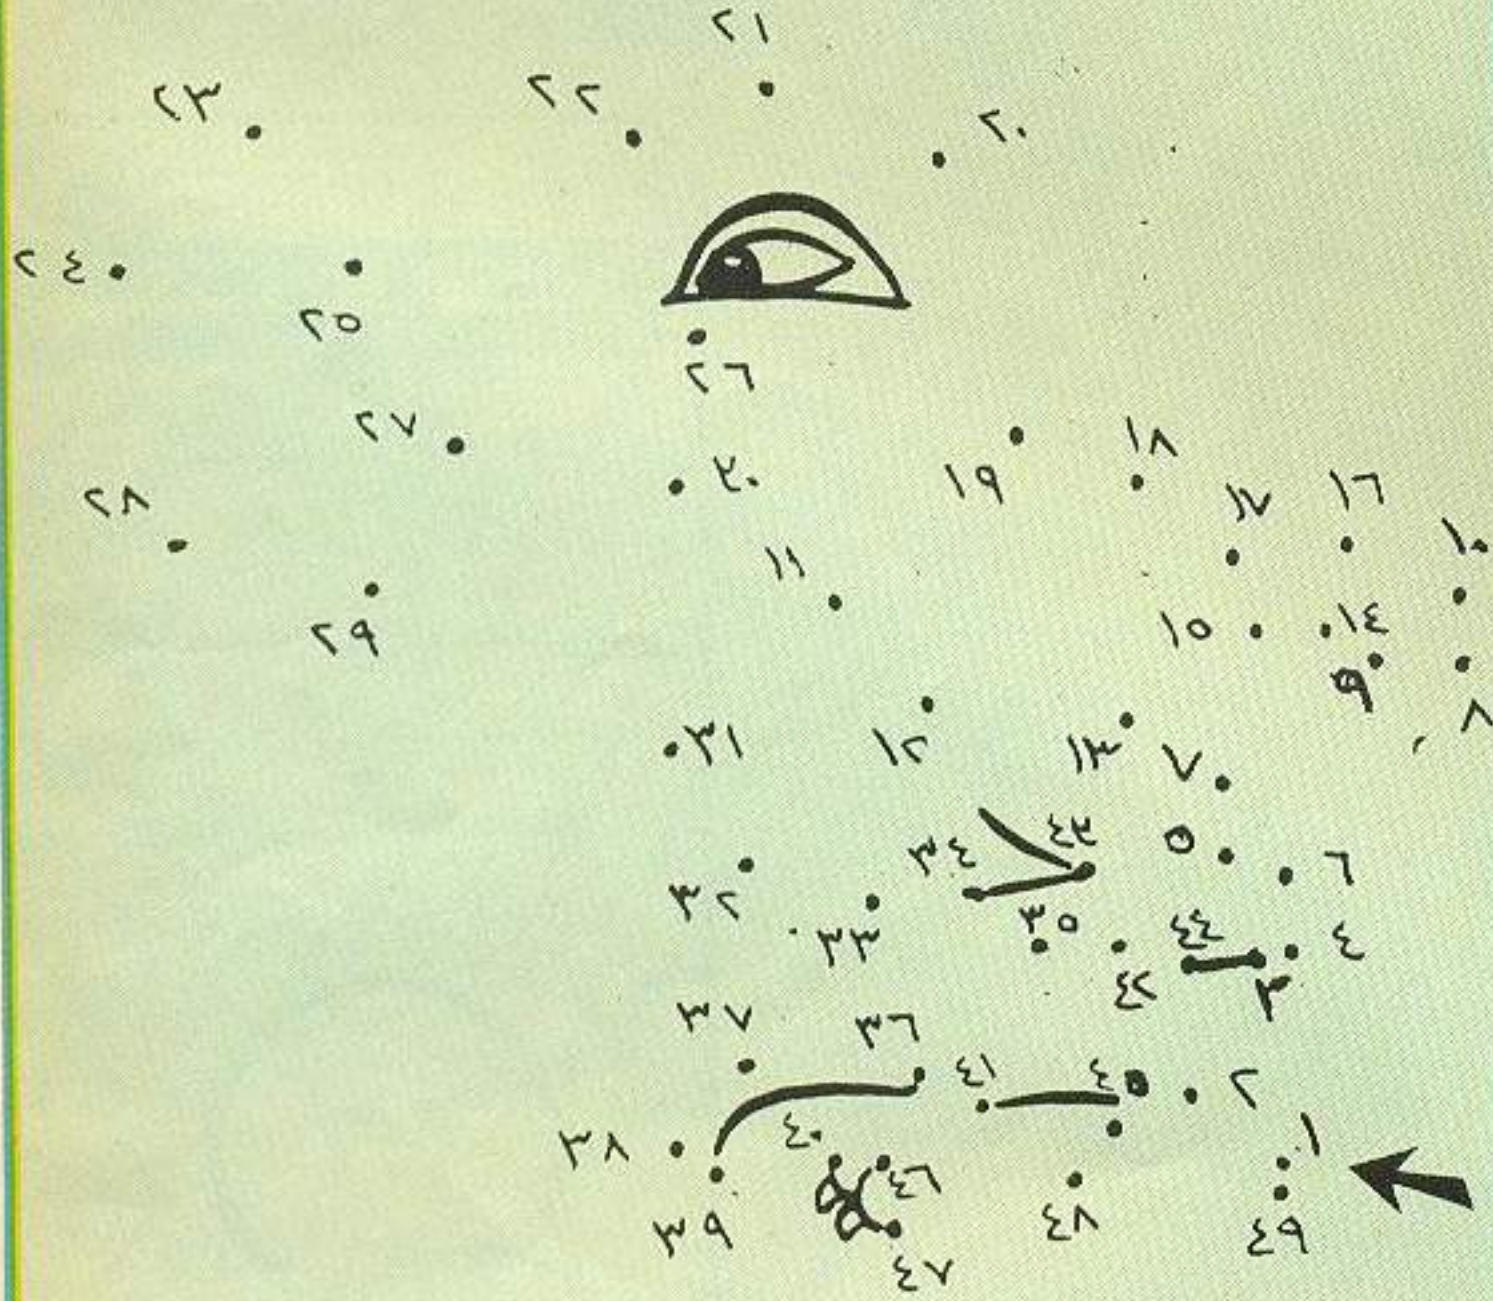 ٢١
٢٣
٢٢
٢٠
٢٤
٢٥
٢٦
٢٧
١٨
٣٠
١٩
٢٨
١٧
١٦
١٠
١١
٢٩
١٥
١٤
٩
٨
٣١
١٢
١٣
٧
٤٣
٥
٣٤
٦
٣٢
٣٣
٣٥
٤٤
٤
٤٢
٣
٣٧
٣٦
٤١
٤٥
٢
٤٠
١
٣٨
٤٦
٣٩
٤٨
٤٩
٤٧